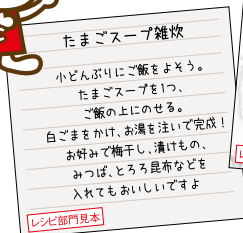 たまごスープ雑炊
小どんぶりにご飯をよそう。
たまごスープを1つ、
ご飯の上にのせる。
白ごまをかけ、お湯を注いで完成！
お好みで梅干し、漬けもの、
みつば、とろろ昆布などを
入れてもおいしいですよ
レシピ部門見本